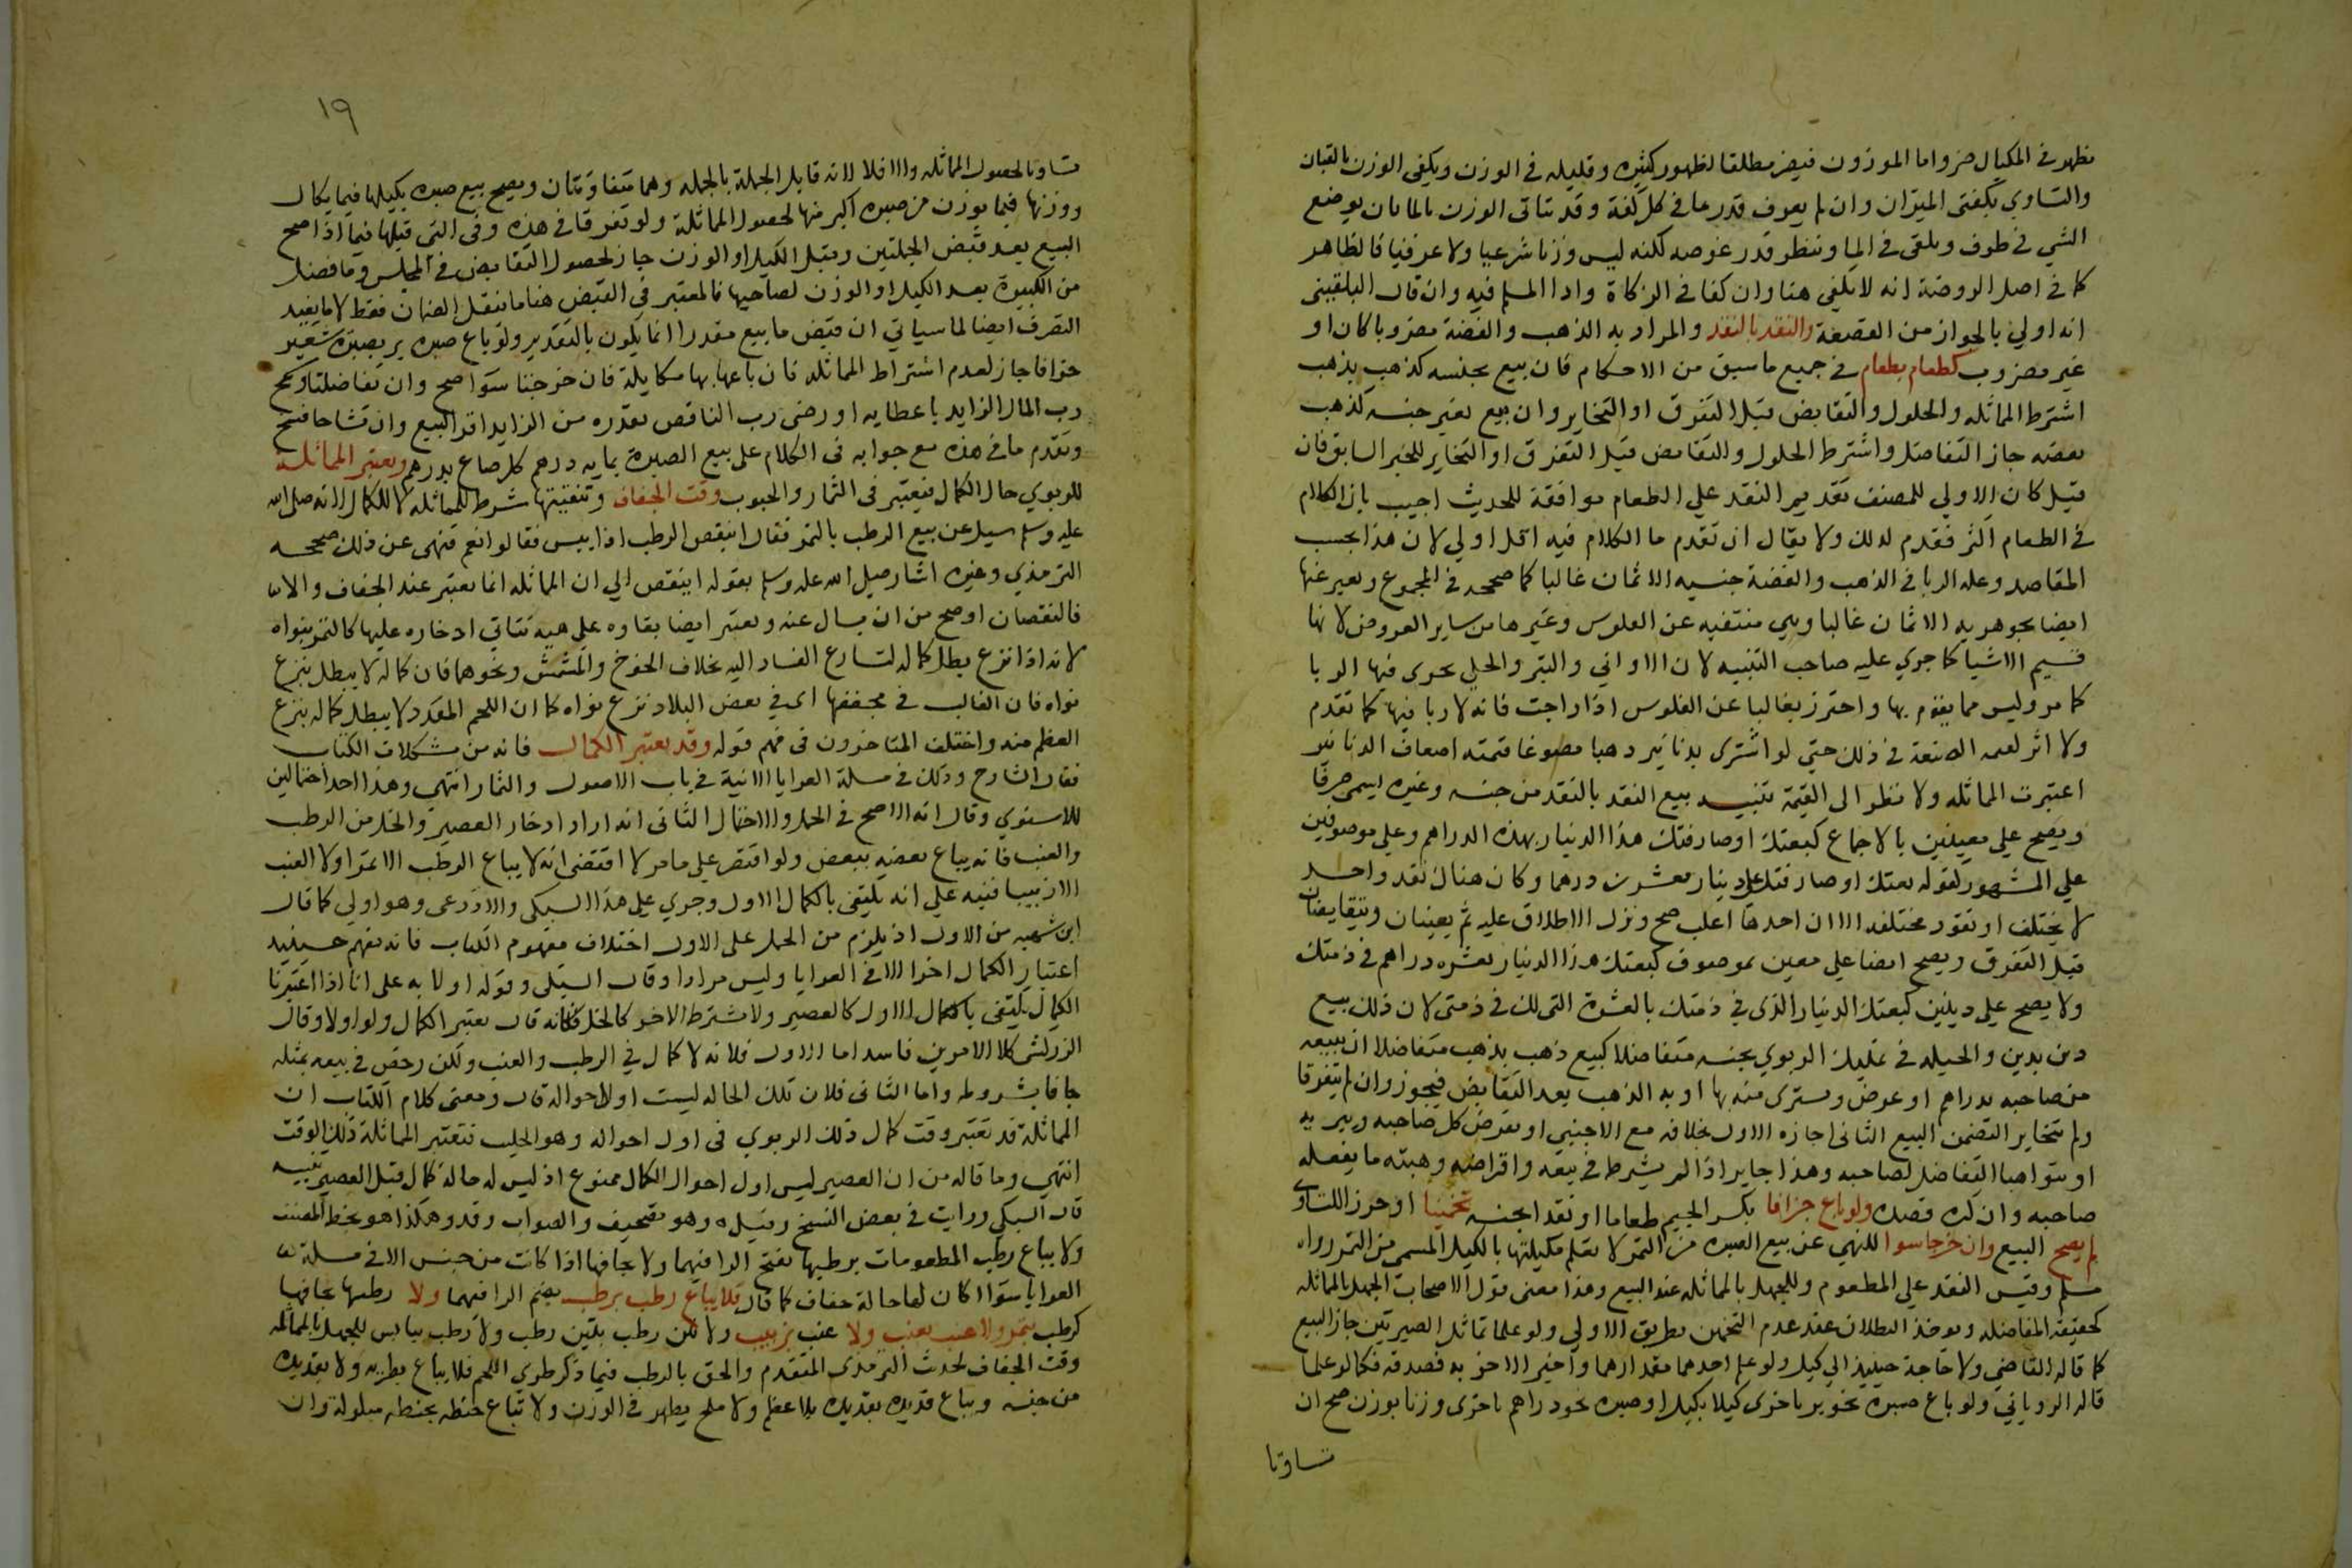 يظهر في المكيال ضر واما الموزون فيضر مطلقا لظهور كثيره وقليله في الوزن ويكفي الوزن بالقبان
والتساوي بكفتي الميزان وان لم يعرف قدر ما في كل كفة وقد يتاتى الوزن بالما بان يوضع
الشي في ظرف ويلقى في الما وينظر قدر غوصه لكنه ليس وزنا شرعيا ولا عرفيا فالظاهر
كما في اصل الروضة انه لا يكفي هنا وان كفا في الزكاة واداا لمسلم فيه وان قال البلقيني
انه اولي بالجواز من القصعة والنقد بالنقد والمراد به الذهب والفضة مضروبا كان او
غير مضروب كطعام بطعام في جميع ما سبق من الاحكام فان بيع بجنسه كذهب بذهب
اشترط المماثله والحلول والتقابض قبل التفرق او التخاير وان بيع بغير جنسه كذهب
بفضه جاز التفاضل واشترط الحلول والتقابض قبل التفرق او التخاير للخبر السابق فان
قيل كان الاولي للمصنف تقديم النقد علي الطعام موافقة للحديث اجيب بان الكلام
في الطعام اكثر فقدم لذلك ولا يقال ان تقدم ما الكلام فيه اقل اولي لان هذا بحسب
المقاصد وعله الربا في الذهب والفضة جنسيه الاثمان غالبا كما صححه في المجموع ويعبر عنها
ايضا بجوهريه الاثمان غالبا وهي منتفيه عن الفلوس وغيرها من ساير العروض لا نها
قسيم الاشيا كما جري عليه صاحب التنبيه لان الاواني والتبر والحلي يجرى فيها الربا
كما مر وليس مما يقوم بها واحترز بغالبا عن الفلوس اذا راجت فانه لا ربا فيها كما تقدم
ولا اثر لقيمه الصنعة في ذلك حتي لو اشترى بدنانير دهبا مصوغا قيمته اضعاف الدنانير
اعتبرت المماثله ولا نظر الى القيمة تنبيه بيع النقد بالنقد من جنسه وغيره يسمى صرفا
ويصح علي معينين بالاجماع كبعتك او صارفتك هذا الدينار بهذه الدراهم وعلي موصوفين
علي المشهور لقوله بعتك او صارفتك على دينار بعشرين درهما وكان هناك نقد واحد
لا يختلف او نقود مختلفه الا ان احدها اغلب صح ونزل الاطلاق عليه ثم يعينان ويتقابضان
قبل التفرق ويصح ايضا علي معين بموصوف كبعتك هذا الدينار بعشره دراهم في ذمتك
ولا يصح علي دينين كبعتك الدينار الذي في ذمتك بالعشرة التي لك في ذمتي لان ذلك بيع
دين بدين والحيله في تمليك الربوي بجنسه متفاضلا كبيع ذهب بذهب متفاضلا ان يبيعه
من صاحبه بدراهم او عرض ويشترى منه بها او به الذهب بعد التقابض فيجوز وان لم يتفرقا
ولم يتخاير التضمن البيع الثاني اجازه الاول بخلافه مع الاجنبي او يقرض كل صاحبه ويبريه
او يتواهبا التفاضل لصاحبه وهذا جايز اذا لم يشرط في بيعه واقراضه وهبته ما يفعله
صاحبه وان كره قصده ولو باع جزافا بكسر الجيم طعاما او نقدا بجنسه تخمينا او حزرا للتساوى
لم يصح البيع وان خرجا سوا للنهي عن بيع الصبره من التمر لا يعلم مكيلتها بالكيل المسمى من التمر رواه
مسلم وقيس النقد علي المطعوم وللجهل بالمماثله عند البيع وهذا معنى قول الاصحاب الجهل بالمماثله
كحقيقه المفاضله ويوخذ البطلان عند عدم التخمين بطريق الاولي ولو علما تماثل الصبرتين جاز البيع
كما قاله القاضي ولا حاجة حينيذ الي كيل ولو علم احدهما مقدارهما واخبر الاخر به فصدقه فكما لو علما
قاله الروياني ولو باع صبره نحو بر باخرى كيلا بكيل او صبره نحو دراهم باخرى وزنا بوزن صح ان
تساوتا
١٩
تساوتا لحصول المماثله والا فلا لانه قابل الجملة بالجمله وهما متفاوتتان ويصح بيع صبره بكيلها فيما يكال
ووزنها فيما يوزن من صبره اكبر منها لحصول المماثلة ولو تفرقا في هذه وفي التي قبلها فيما اذا صح
البيع بعد قبض الجملتين وقبل الكيل او الوزن جاز لحصول التقابض في المجلس وما فضل
من الكبيرة بعد الكيل او الوزن لصاحبها فالمعتبر في القبض هنا ما ينقل الضمان فقط لا ما يفيد
التصرف ايضا لما سياتي ان قبض ما بيع مقدرا انما يكون بالتقدير ولو باع صبره بر بصبرة شعير
جزافا جاز لعدم اشتراط المماثله فان باعها بها مكايلة فان خرجتا سوا صح وان تفاضلتا وسمح
رب المال الزايد باعطايه او رضى رب الناقص بقدره من الزايد اقر البيع وان تشاحا فسخ
وتقدم ما في هذه مع جوابه في الكلام على بيع الصبرة بمايه درهم كل صاع بدرهم وتعتبر المماثلة
للربوي حال الكمال فيعتبر في الثمار والحبوب وقت الجفاف وتنقيتها شرط للمماثله لا للكمال لانه صلى الله
عليه وسلم سيل عن بيع الرطب بالتمر فقال اينقص الرطب اذا يبس فقالوا نعم فنهى عن ذلك صححه
الترمذي وغيره اشار صلى الله عليه وسلم بقوله اينقص الي ان المماثله انما تعتبر عند الجفاف والا
فالنقصان اوضح من ان يسال عنه ويعتبر ايضا بقاوه علي هيه يتاتي ادخاره عليها كالتمر بنواه
لانه اذا نزع بطل كماله لتسارع الفساد اليه بخلاف الخوخ والمشمش ونحوهما فان كماله لا يبطل بنزع
نواه فان الغالب في تجفيفها اى في بعض البلاد نزع نواه كما ان اللحم المقدد لا يبطل كماله بنزع
العظم منه واختلف المتاخرون في فهم قوله وقد يعتبر الكمال فانه من مشكلات الكتاب
فقال الشارح وذلك في مسلة العرايا الاتية في باب الاصول والثمار انتهى وهذا احد احتمالين
للاسنوي وقال انه الاصح في الحمل والاحتمال الثاني انه اراد ادخار العصير والخل من الرطب
والعنب فانه يباع بعضه ببعض ولو اقتصر علي ما مر لا اقتضى انه لا يباع الرطب الا تمرا ولا العنب
الا زبيبا فنبه علي انه يكتفى بالكمال الاول وجري علي هذا السبكي والاذرعى وهو اولى كما قال
ابن شهبه من الاول اذ يلزم من الحمل على الاول اختلاف مفهوم الكتاب فانه يفهم حينيذ
اعتبار الكمال اخرا الا في العرايا وليس مرادا وقال السبكي وقوله اولا به على انا اذا اعتبرنا
الكمال يكتفى بالكمال الاول كالعصير ولا نشترط الاخر كالخل فكانه قال يعتبر الكمال ولو اولا وقال
الزركشي كلا الامرين فاسد اما الاول فلانه لا كمال في الرطب والعنب ولكن رخص في بيعه بمثله
جافا بشروطه واما الثاني فلان تلك الحاله ليست اولا احواله قال ومعنى كلام الكتاب ان
المماثلة قد تعتبر وقت كمال ذلك الربوي في اول احواله وهو الحليب فتعتبر المماثلة ذلك الوقت
انتهي وما قاله من ان العصير ليس اول احوال الكمال ممنوع اذ ليس له حالة كمال قبل العصير تنبيه
قال السبكي ورايت في بعض النسخ وقيل ه وهو تصحيف والصواب وقد وهكذا هو بخط المصنف
ولا يباع رطب المطعومات برطبها بفتح الرا فيهما ولا بجافها اذا كانت من جنس الا في مسلة
العرايا سوا اكان لها حالة جفاف كما قال فلا يباع رطب برطب بضم الرا فيهما ولا رطبها بجافها
كرطب بتمر ولا عنب بعنب ولا عنب بزبيب رطب ولا رطب بيابس للجهل بالمماثله
وقت الجفاف لحديث الترمذي المتقدم والحق بالرطب فيما ذكر طري اللحم فلا يباع بطريه ولا بقديده
من جنسه ويباع قديده بقديده بلا عظم ولا ملح يظهر في الوزن ولا تباع حنطه بحنطه مبلولة وان